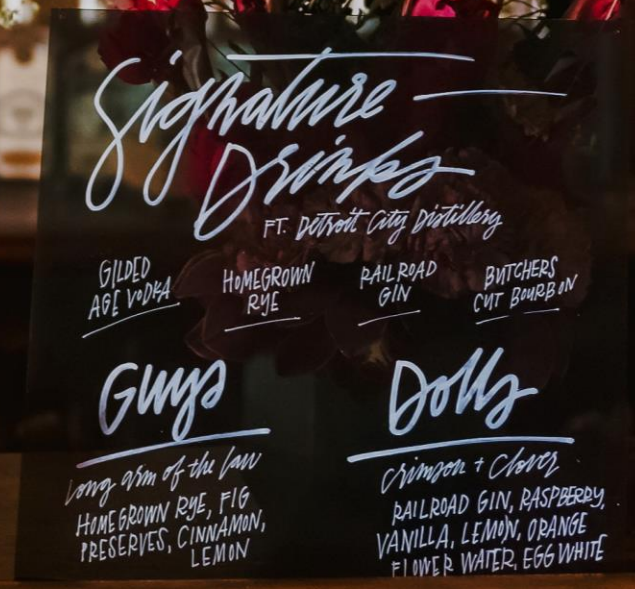 Signature
Drinks
FT. Detroit City Distillery
GILDED
AGE VODKA
HOMEGROWN
RYE
RAILROAD
GIN
BUTCHERS
CUT BOURBON
Guys
Long arm of the law
HOMEGROWN RYE, FIG
PRESERVES, CINNAMON,
LEMON
Dolls
crimson + Clover
RAILROAD GIN, RASPBERRY,
VANILLA, LEMON, ORANGE
FLOWER WATER, EGG WHITE